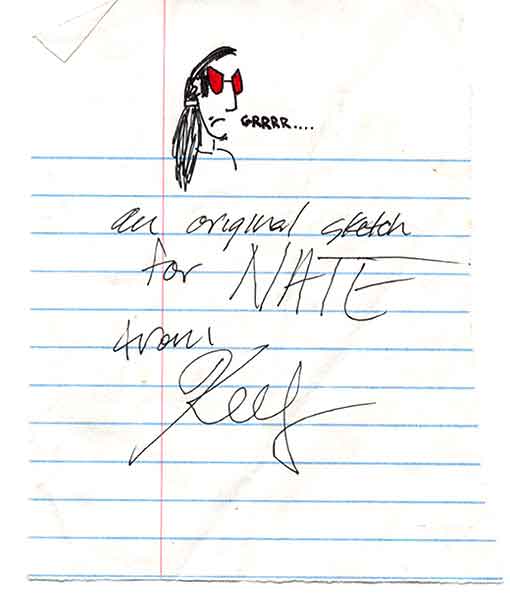 GRRRR....
an original sketch
for NATE
from
Keef